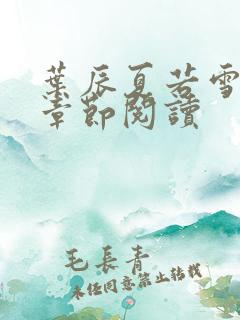 葉辰夏若雪
章節閱讀
毛長青
未經同意禁止轉載